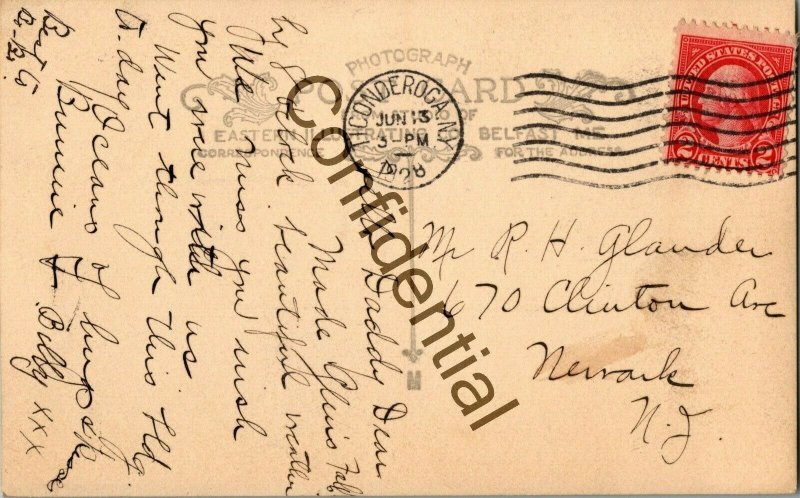 PHOTOGRAPH
POST CARD
MANUF'D BY
EASTERN ILLUSTRATING CO. BELFAST ME.
CORRESPONDENCE
FOR THE ADDRESS
M
TICONDEROGA N.Y.
JUN 13
3-PM
1928
UNITED STATES POSTAGE
2 CENTS 2
Hello Daddy Dear
Made Glens Falls
by 9 o'clock beautiful weather
We Miss you wish
you were with us
Went through this
day
Oceans of hugs &
Bunnie & Billy xxx
Best
Mr R. H. Glander
670 Clinton Ave
Newark
N.J.
Confidential